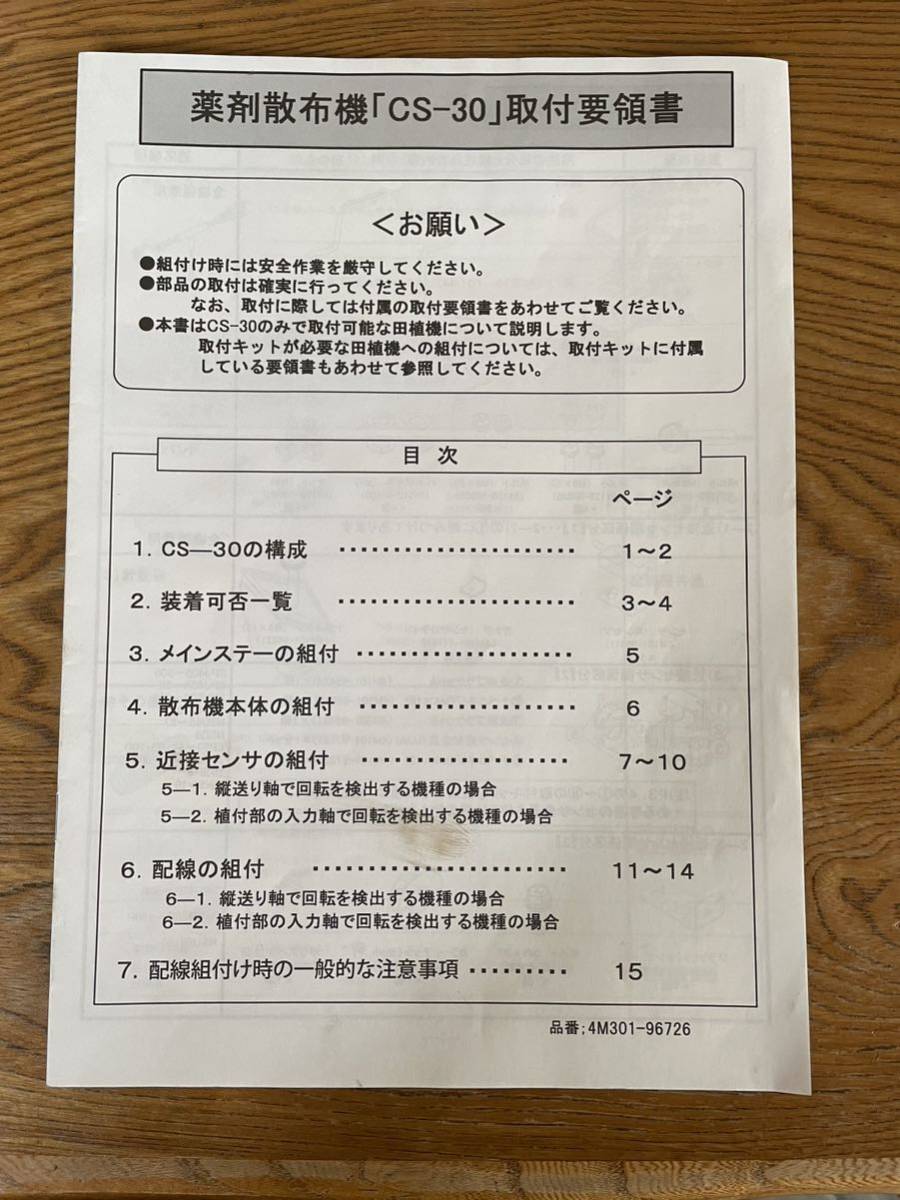 薬剤散布機「CS-30」取付要領書
＜お願い＞
●組付け時には安全作業を厳守してください。
●部品の取付は確実に行ってください。
なお、取付に際しては付属の取付要領書をあわせてご覧ください。
●本書はCS-30のみで取付可能な田植機について説明します。
取付キットが必要な田植機への組付については、取付キットに付属
している要領書もあわせて参照してください。
目 次
ページ
1. CS―30の構成 ・・・・・・・・・・・・・・・・・・・・・・・ 1～2
2. 装着可否一覧 ・・・・・・・・・・・・・・・・・・・・・・・ 3～4
3. メインステーの組付 ・・・・・・・・・・・・・・・・・・・・・ 5
4. 散布機本体の組付 ・・・・・・・・・・・・・・・・・・・・・ 6
5. 近接センサの組付 ・・・・・・・・・・・・・・・・・・・・ 7～10
5―1. 縦送り軸で回転を検出する機種の場合
5―2. 植付部の入力軸で回転を検出する機種の場合
6. 配線の組付 ・・・・・・・・・・・・・・・・・・・・・・・・ 11～14
6―1. 縦送り軸で回転を検出する機種の場合
6―2. 植付部の入力軸で回転を検出する機種の場合
7. 配線組付け時の一般的な注意事項 ・・・・・・・・・ 15
品番;4M301-96726